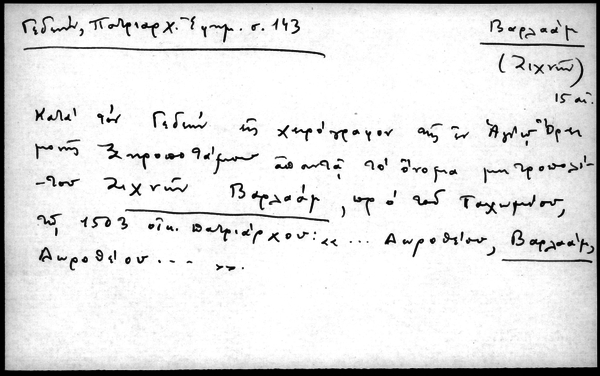 Γεδεών, Πατριαρχ. Ἐφημ. σ. 143
Βαρλαάμ
(Ζιχνῶν)
15 αἰ.
Κατά τόν Γεδεών εἰς χειρόγραφον τῆς ἐν Ἁγίῳ Ὄρει
μονῆς Ξηροποτάμου ἀπαντᾷ τό ὄνομα μητροπολί-
-του Ζιχνῶν Βαρλαάμ, πρό τοῦ Παχωμίου,
τῷ 1503 οἰκ. πατριάρχου: «... Δωροθέου, Βαρλαάμ,
Δωροθέου ... ».